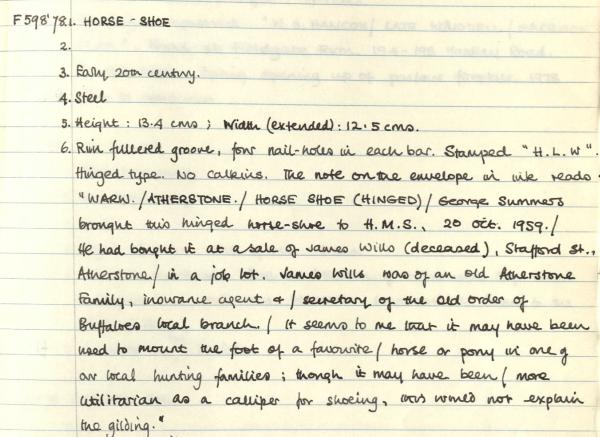 F598'78. 1. HORSE - SHOE
2.
3. Early 20th century.
4. Steel
5. Height : 13.4 cms ; Width (extended) : 12.5 cms.
6. Rim fullered groove, four nail-holes in each bar. Stamped "H.L.W".
Hinged type. No calkins. The note on the envelope in ink reads
"WARW. / ATHERSTONE. / HORSE SHOE (HINGED) / George Summers
brought this hinged horse-shoe to H.M.S., 20 Oct. 1959. /
He had bought it at a sale of James Wills (deceased), Stafford St.,
Atherstone / in a job lot. James Wills was of an old Atherstone
family, insurance agent & / secretary of the Old order of
Buffaloes local branch. / It seems to me that it may have been
used to mount the foot of a favourite / horse or pony in one of
our local hunting families ; though it may have been / more
utilitarian as a calliper for shoeing, this would not explain
the gilding."